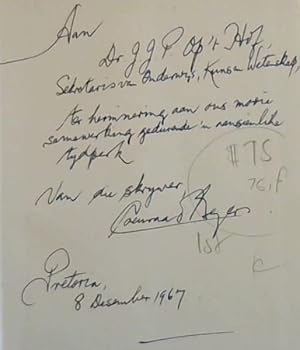 Aan
Dr J J P Op't Hof,
Sekretaris van Onderwys, Kuns en Wetenskap,
ter herinnering aan ons mooie
samewerking gedurende 'n aansienlike
tydperk
$75
Van die skrywer,
1st
Pretoria,
8 Desember 1967